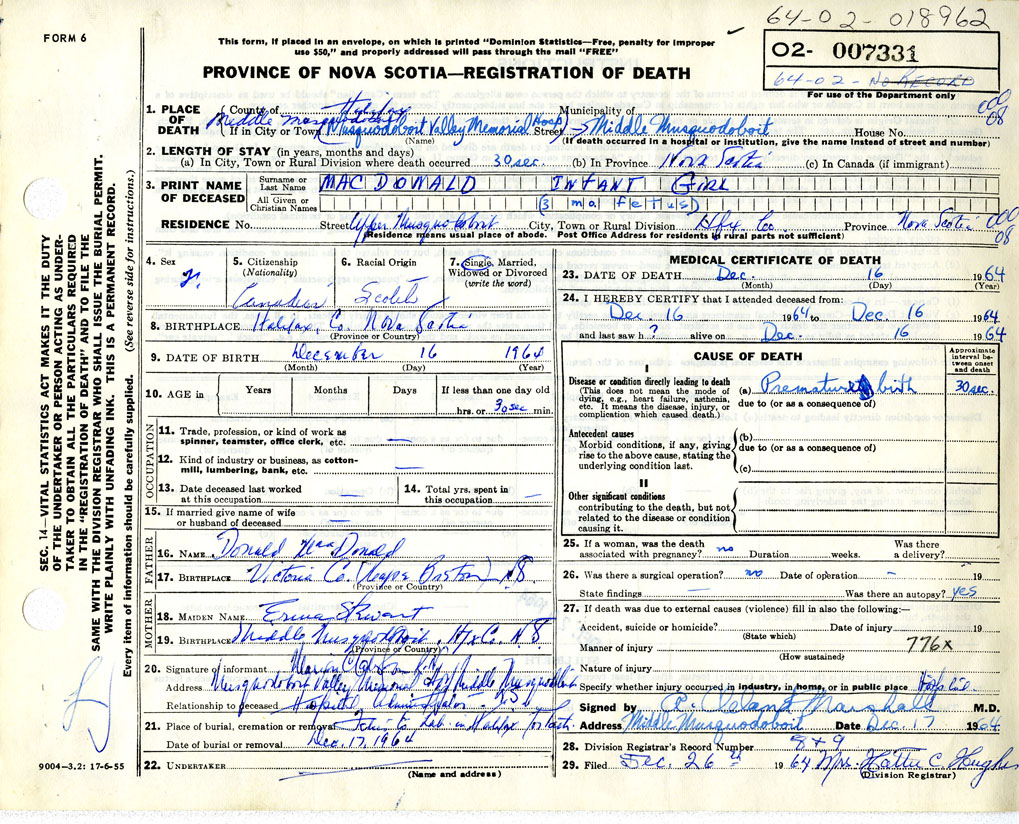 64-02-018962
FORM 6
This form, if placed in an envelope, on which is printed "Dominion Statistics—Free, penalty for improper
use $50," and properly addressed will pass through the mail "FREE"
PROVINCE OF NOVA SCOTIA—REGISTRATION OF DEATH
02- 007331
64-02- No RECORD
For use of the Department only
000
08
1. PLACE OF DEATH
County of Halifax Municipality of
Middle Musquodoboit
If in City or Town Musquodoboit Valley Memorial Hosp Street Middle Musquodoboit House No.
(Name) (If death occurred in a hospital or institution, give the name instead of street and number)
2. LENGTH OF STAY (in years, months and days)
(a) In City, Town or Rural Division where death occurred 30 sec. (b) In Province Nova Scotia (c) In Canada (if immigrant)
3. PRINT NAME OF DECEASED
Surname or Last Name MAC DONALD INFANT GIRL
All Given or Christian Names (3 ma fetus)
RESIDENCE No. Street Upper Musquodoboit City, Town or Rural Division Hfx Co. Province Nova Scotia 000
08
(Residence means usual place of abode. Post Office Address for residents in rural parts not sufficient)
4. Sex
5. Citizenship (Nationality) Canadian
6. Racial Origin Scotch
7. Single, Married, Widowed or Divorced (write the word)
8. BIRTHPLACE Halifax, Co. Nova Scotia
(Province or Country)
9. DATE OF BIRTH December 16 1964
(Month) (Day) (Year)
10. AGE in Years Months Days If less than one day old
hrs. or 30 sec min.
OCCUPATION
11. Trade, profession, or kind of work as
spinner, teamster, office clerk, etc. —
12. Kind of industry or business, as cotton-
mill, lumbering, bank, etc. —
13. Date deceased last worked
at this occupation —
14. Total yrs. spent in
this occupation —
15. If married give name of wife
or husband of deceased —
FATHER
16. NAME Donald MacDonald
17. BIRTHPLACE Victoria Co. (Cape Breton) N.S.
(Province or Country)
MOTHER
18. MAIDEN NAME Stewart
19. BIRTHPLACE Middle Musquodoboit, Hfx Co. N.S.
(Province or Country)
20. Signature of informant Marion R.N.
Address Musquodoboit Valley Memorial Hosp Middle Musquodoboit
Relationship to deceased Hospital Administrator
21. Place of burial, cremation or removal to Lab in Halifax for Path
Date of burial or removal Dec. 17, 1964
22. UNDERTAKER
(Name and address)
MEDICAL CERTIFICATE OF DEATH
23. DATE OF DEATH Dec. 16 1964
(Month) (Day) (Year)
24. I HEREBY CERTIFY that I attended deceased from:
Dec. 16 1964 to Dec. 16 1964
and last saw h ? alive on Dec. 16 1964
CAUSE OF DEATH
Approximate interval between onset and death
I
Disease or condition directly leading to death
(This does not mean the mode of
dying, e.g., heart failure, asthenia,
etc. It means the disease, injury, or
complication which caused death.)
(a) Premature birth 30 sec.
due to (or as a consequence of)
Antecedent causes
Morbid conditions, if any, giving
rise to the above cause, stating the
underlying condition last.
(b)
due to (or as a consequence of)
(c)
II
Other significant conditions
contributing to the death, but not
related to the disease or condition
causing it.
25. If a woman, was the death
associated with pregnancy? no Duration weeks. Was there
a delivery?
26. Was there a surgical operation? no Date of operation – 19
State findings — Was there an autopsy? yes
27. If death was due to external causes (violence) fill in also the following:—
Accident, suicide or homicide? Date of injury 19
(State which)
Manner of injury 776x
(How sustained)
Nature of injury
Specify whether injury occurred in industry, in home, or in public place
Signed by A. Cleland Marshall M.D.
Address Middle Musquodoboit Date Dec. 17 1964
28. Division Registrar's Record Number 849
29. Filed Dec. 26th 1964 Mrs. Hattie C. Hughes
(Division Registrar)
SEC. 14—VITAL STATISTICS ACT MAKES IT THE DUTY
OF THE UNDERTAKER OR PERSON ACTING AS UNDER-
TAKER TO OBTAIN ALL THE PARTICULARS REQUIRED
IN THE "REGISTRATION OF DEATH" AND TO FILE THE
SAME WITH THE DIVISION REGISTRAR WHO SHALL ISSUE THE BURIAL PERMIT.
WRITE PLAINLY WITH UNFADING INK. THIS IS A PERMANENT RECORD.
Every item of information should be carefully supplied. (See reverse side for instructions.)
9004—3.2: 17-6-55